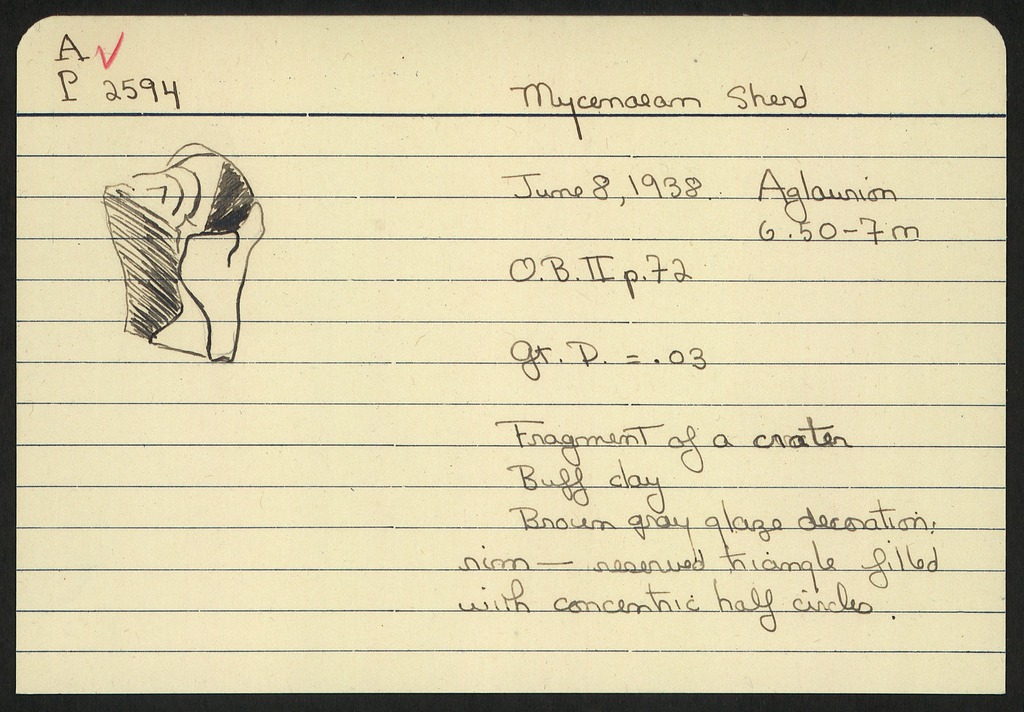 A ✓
P 2594
Mycenaean Sherd
June 8, 1938. Aglaurion
6.50-7m
O.B. II p.72
gr. D. = .03
Fragment of a crater
Buff clay
Brown gray glaze decoration:
rim — reserved triangle filled
with concentric half circles.